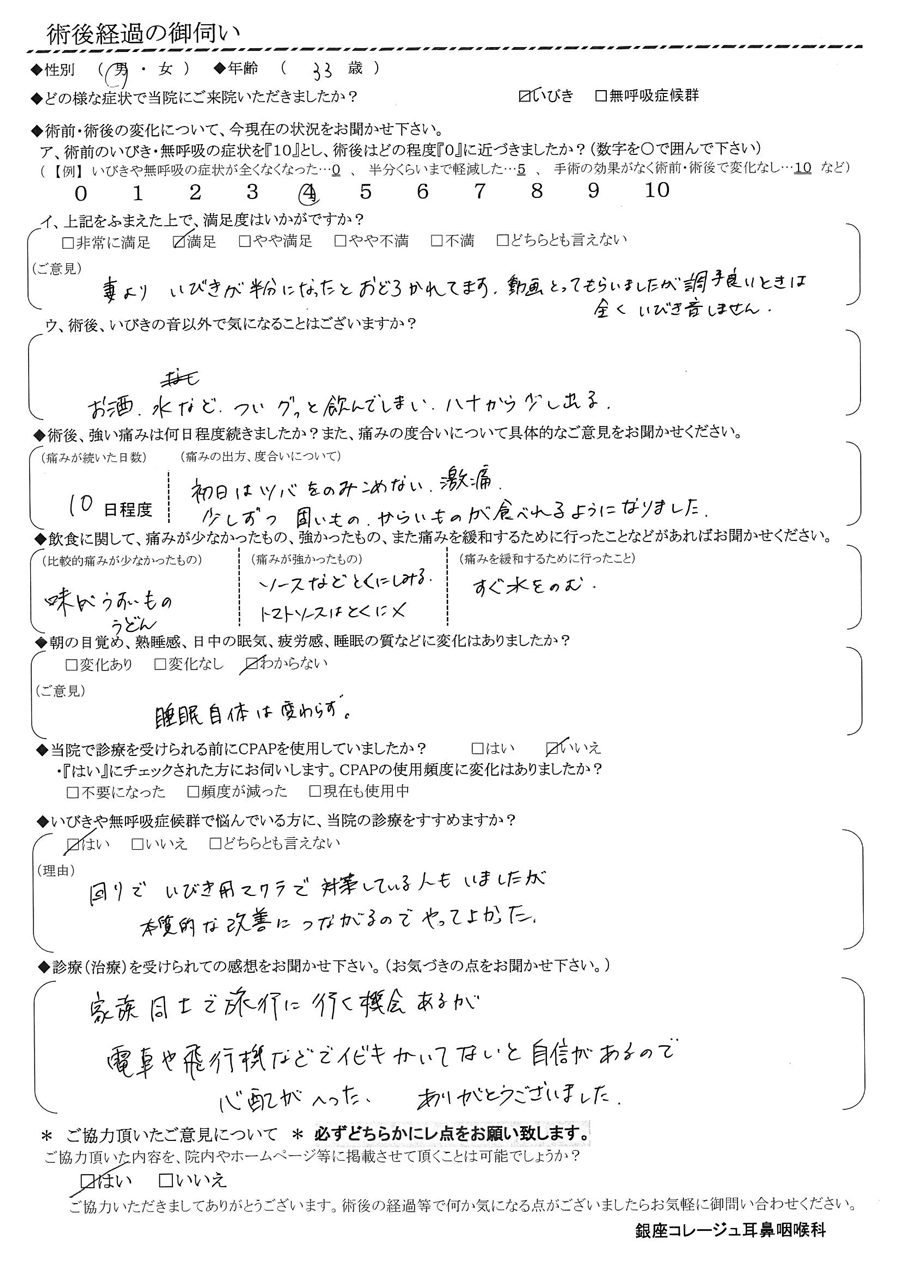 術後経過の御伺い
◆性別 ( 男 ・ 女 ) ◆年齢 ( 33 歳 )
◆どの様な症状で当院にご来院いただきましたか? ☑いびき □無呼吸症候群
◆術前・術後の変化について、今現在の状況をお聞かせ下さい。
ア、術前のいびき・無呼吸の症状を『10』とし、術後はどの程度『0』に近づきましたか?(数字を○で囲んで下さい)
(【例】 いびきや無呼吸の症状が全くなくなった…0 、 半分くらいまで軽減した…5 、 手術の効果がなく術前・術後で変化なし…10 など)
0 1 2 3 4 5 6 7 8 9 10
イ、上記をふまえた上で、満足度はいかがですか?
□非常に満足 ☑満足 □やや満足 □やや不満 □不満 □どちらとも言えない
(ご意見)
妻より いびきが半分になったとおどろかれてます。動画とってもらいましたが調子良いときは
全くいびき音しません。
ウ、術後、いびきの音以外で気になることはございますか?
なし
お酒、水など、ついグッと飲んでしまい、ハナから少し出る。
◆術後、強い痛みは何日程度続きましたか?また、痛みの度合いについて具体的なご意見をお聞かせください。
(痛みが続いた日数) (痛みの出方、度合いについて)
10 日程度 初日はツバをのみこめない、激痛
少しずつ 固いもの、からいものが食べれるようになりました。
◆飲食に関して、痛みが少なかったもの、強かったもの、また痛みを緩和するために行ったことなどがあればお聞かせください。
(比較的痛みが少なかったもの) (痛みが強かったもの) (痛みを緩和するために行ったこと)
味がうすいもの ソースなどとくにしみる。 すぐ水をのむ。
うどん トマトソースはとくに×
◆朝の目覚め、熟睡感、日中の眠気、疲労感、睡眠の質などに変化はありましたか?
□変化あり □変化なし ☑わからない
(ご意見)
睡眠自体は変わらず。
◆当院で診療を受けられる前にCPAPを使用していましたか? □はい ☑いいえ
・『はい』にチェックされた方にお伺いします。CPAPの使用頻度に変化はありましたか?
□不要になった □頻度が減った □現在も使用中
◆いびきや無呼吸症候群で悩んでいる方に、当院の診療をすすめますか?
☑はい □いいえ □どちらとも言えない
(理由)
回りで いびき用マクラで 対策している人も いましたが
本質的な改善に つながるので やってよかった。
◆診療(治療)を受けられての感想をお聞かせ下さい。(お気づきの点をお聞かせ下さい。)
家族同士で旅行に行く機会あるが
電車や飛行機などでイビキかいてないと自信があるので
心配がへった、 ありがとうございました。
＊ ご協力頂いたご意見について ＊ 必ずどちらかにレ点をお願い致します。
ご協力頂いた内容を、院内やホームページ等に掲載させて頂くことは可能でしょうか?
☑はい □いいえ
ご協力いただきましてありがとうございます。術後の経過等で何か気になる点がございましたらお気軽に御問い合わせください。
銀座コレージュ耳鼻咽喉科